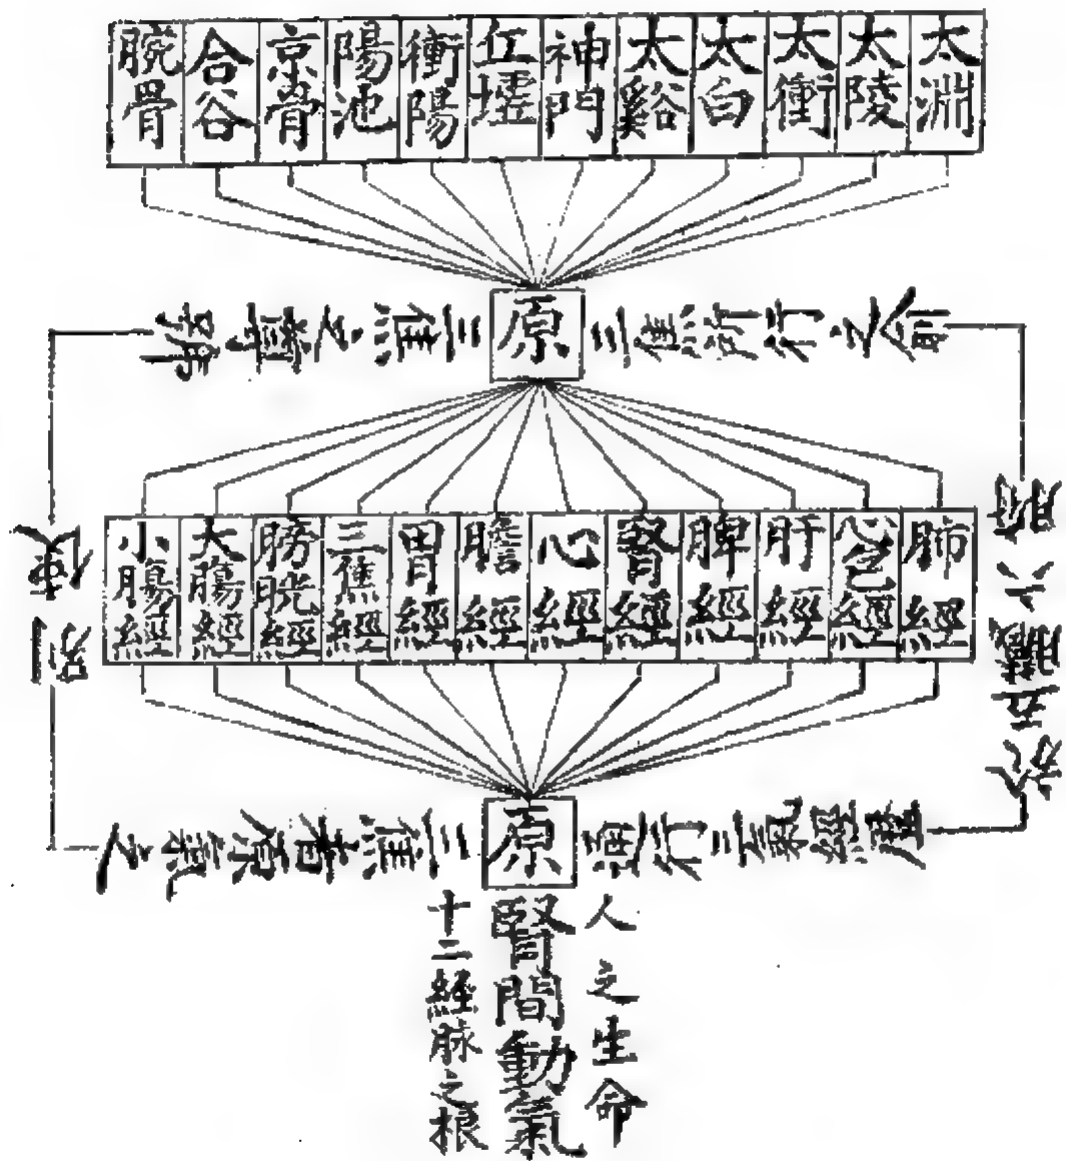 太淵
太陵
太衝
太白
太谿
神門
丘墟
衝陽
陽池
京骨
合谷
腕骨
原
三焦所行之俞
三焦之尊號
肺經
心包經
肝經
脾經
腎經
心經
膽經
胃經
三焦經
膀胱經
大腸經
小腸經
原
三焦者原氣之
別使
通行三氣經歷
於五臟六腑
人之生命
腎間動氣
十二經脉之根